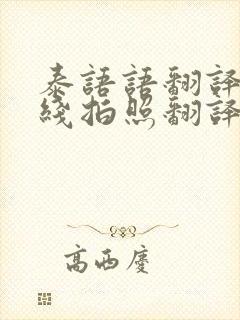 泰語語翻譯
綫拍照翻譯
高西慶